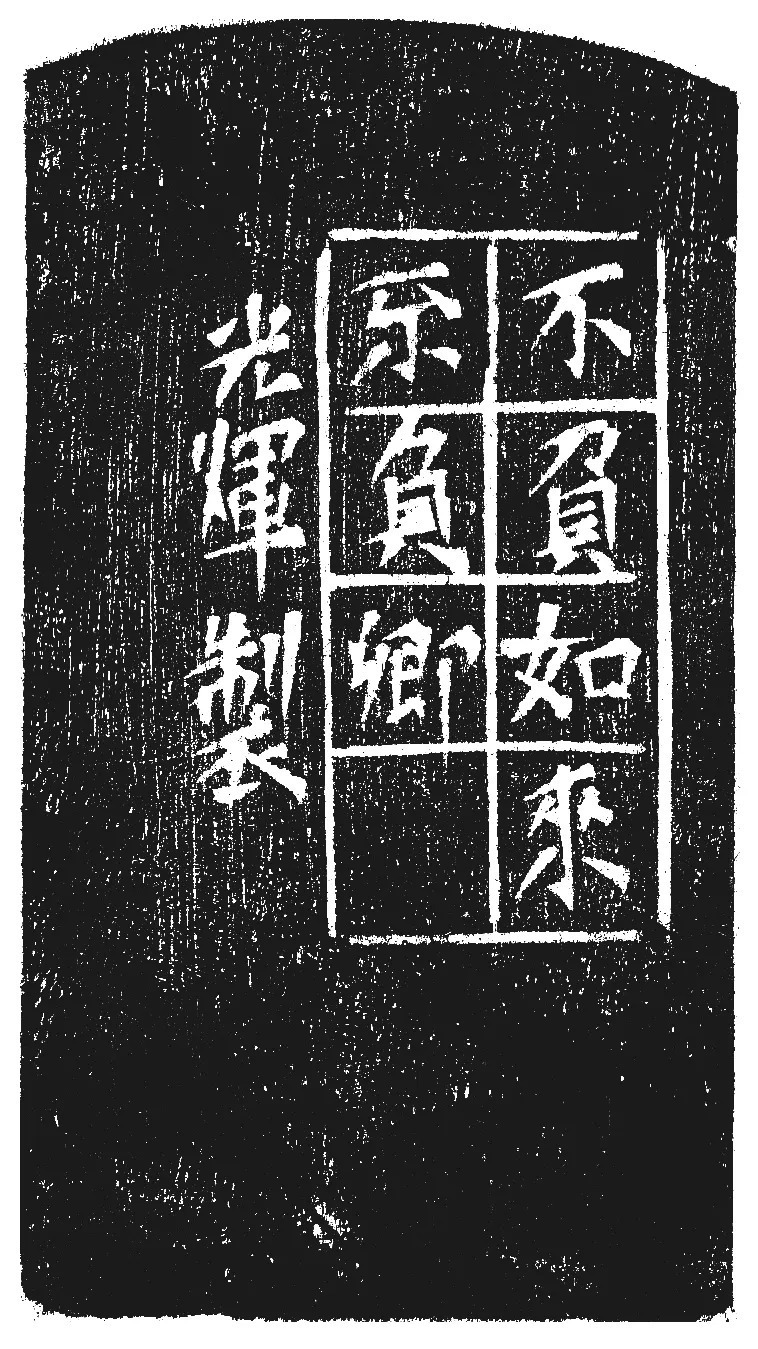 不負如來
不負卿
光輝製